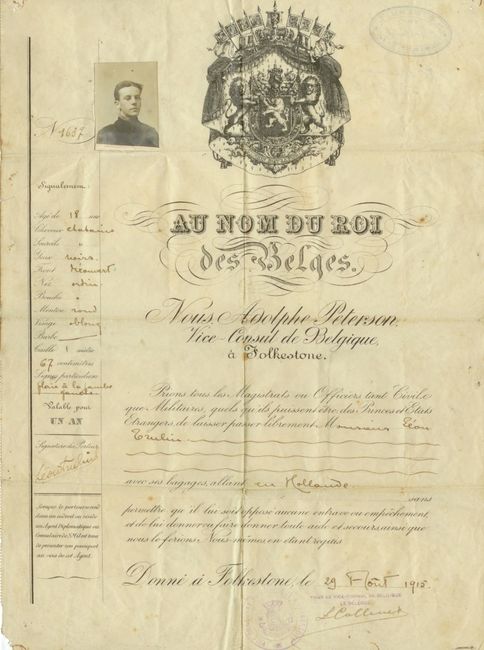 N 1687
Signalement:
Agé de 18 ans
Cheveux chatains
Sourcils "
Yeux noirs
Front découvert
Nez ordin
Bouche "
Menton rond
Visage oblong
Barbe
Taille 1 mètre
67 centimètres
Signes particuliers
plaie à la jambe
gauche
Valable pour
UN AN
Signature du Porteur
Lorsque le porteur
un Agent Diplomatique ou
Consulaire de S. M. il est tenu
de présenter son passeport
au visa de cet Agent.
AU NOM DU ROI
des Belges.
Nous, Adolphe Peterson,
Vice-Consul de Belgique,
à Folkestone.
Prions tous les Magistrats ou Officiers tant Civils
que Militaires, quels qu'ils puissent être des Princes et Etats
Etrangers de laisser passer librement Monsieur Léon
avec ses bagages, allant en Hollande
sans
permettre qu'il lui soit opposé aucune entrave ou empêchement,
et de lui donner ou faire donner toute aide et secours ainsi que
nous le ferions Nous-mêmes en étant requis
Donné à Folkestone, le 29 Août 1915.
POUR LE VICE-CONSUL DE BELGIQUE
LE DÉLÉGUÉ